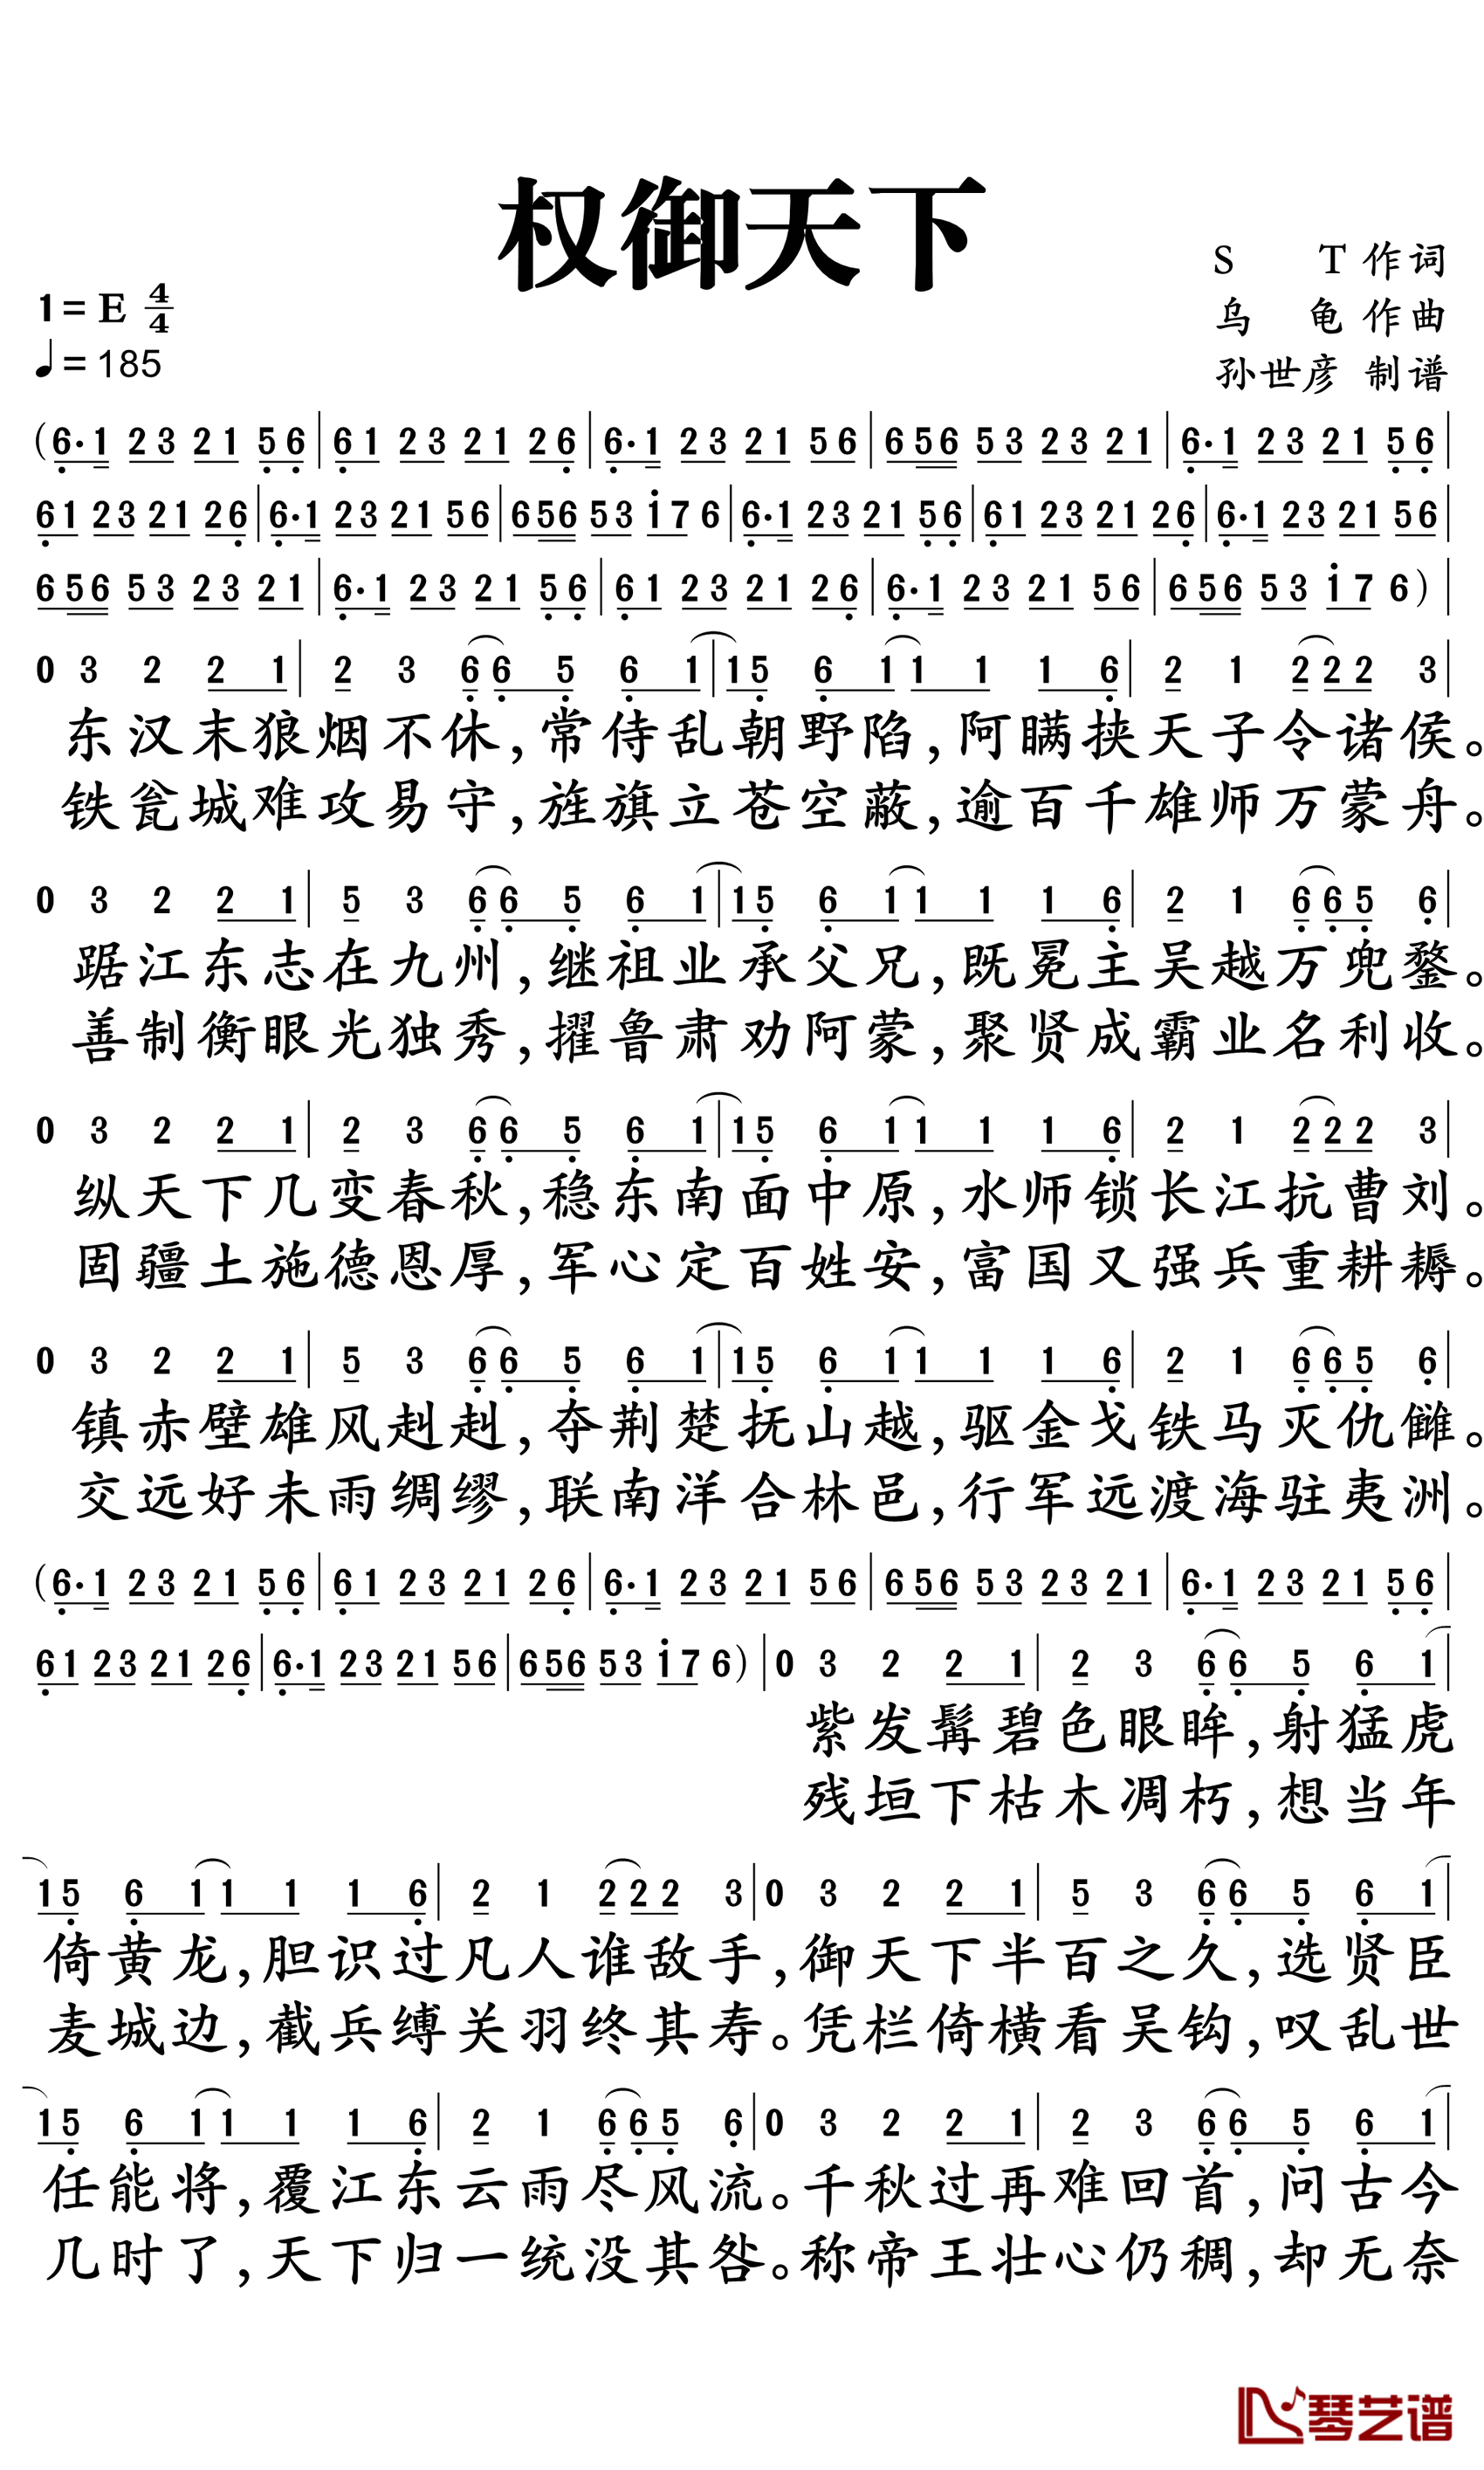 权御天下
S T 作词
1=E 4/4
乌龟 作曲
♩=185
孙世彦 制谱
(6·1 23 21 56|61 23 21 26|6·1 23 21 56|656 53 23 21|6·1 23 21 56|
61 23 21 26|6·1 23 21 56|656 53 i7 6|6·1 23 21 56|61 23 21 26|6·1 23 21 56|
656 53 23 21|6·1 23 21 56|61 23 21 26|6·1 23 21 56|656 53 i7 6)|
0 3 2 2 1|2 3 6 6 5 6 1|1 5 6 1 1 1 1 6|2 1 2 2 2 3|
东汉末狼烟不休,常侍乱朝野陷,阿瞒挟天子令诸侯。
铁瓮城难攻易守,旌旗立苍空蔽,逾百千雄师万蒙舟。
0 3 2 2 1|5 3 6 6 5 6 1|1 5 6 1 1 1 1 6|2 1 6 6 5 6|
踞江东志在九州,继祖业承父兄,既冕主吴越万兜鍪。
善制衡眼光独秀,擢鲁肃劝阿蒙,聚贤成霸业名利收。
0 3 2 2 1|2 3 6 6 5 6 1|1 5 6 1 1 1 1 6|2 1 2 2 2 3|
纵天下几变春秋,稳东南面中原,水师锁长江抗曹刘。
固疆土施德恩厚,军心定百姓安,富国又强兵重耕耨。
0 3 2 2 1|5 3 6 6 5 6 1|1 5 6 1 1 1 1 6|2 1 6 6 5 6|
镇赤壁雄风赳赳,夺荆楚抚山越,驱金戈铁马灭仇雠。
交远好未雨绸缪,联南洋合林邑,行军远渡海驻夷洲。
(6·1 23 21 56|61 23 21 26|6·1 23 21 56|656 53 23 21|6·1 23 21 56|
61 23 21 26|6·1 23 21 56|656 53 i7 6)|0 3 2 2 1|2 3 6 6 5 6 1|
紫发髯碧色眼眸,射猛虎
残垣下枯木凋朽,想当年
1 5 6 1 1 1 1 6|2 1 2 2 2 3|0 3 2 2 1|5 3 6 6 5 6 1|
倚黄龙,胆识过几人谁敌手,御天下半百之久,选贤臣
麦城边,截兵缚关羽终其寿。凭栏倚横看吴钩,叹乱世
1 5 6 1 1 1 1 6|2 1 6 6 5 6|0 3 2 2 1|2 3 6 6 5 6 1|
任能将,覆江东云雨尽风流。千秋过再难回首,问古今
几时了,天下归一统没其咎。称帝王壮心仍稠,却无奈
琴艺谱